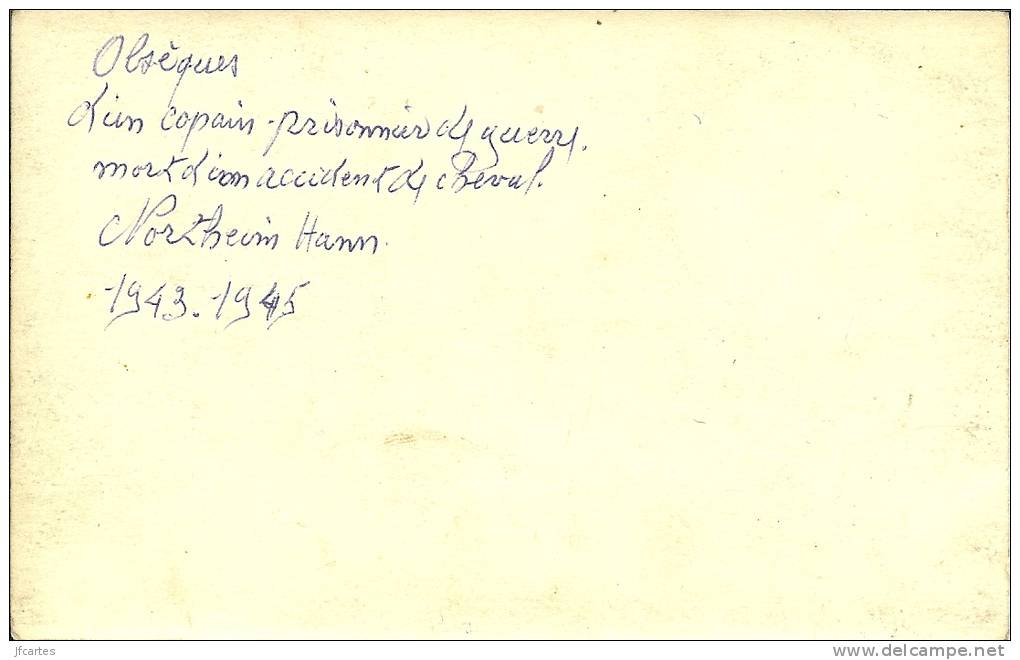 Obsèques
d'un copain-prisonnier de guerre.
mort d'un accident de cheval.
Northeim Hann.
1943.1945
jfcartes
delcampe.net